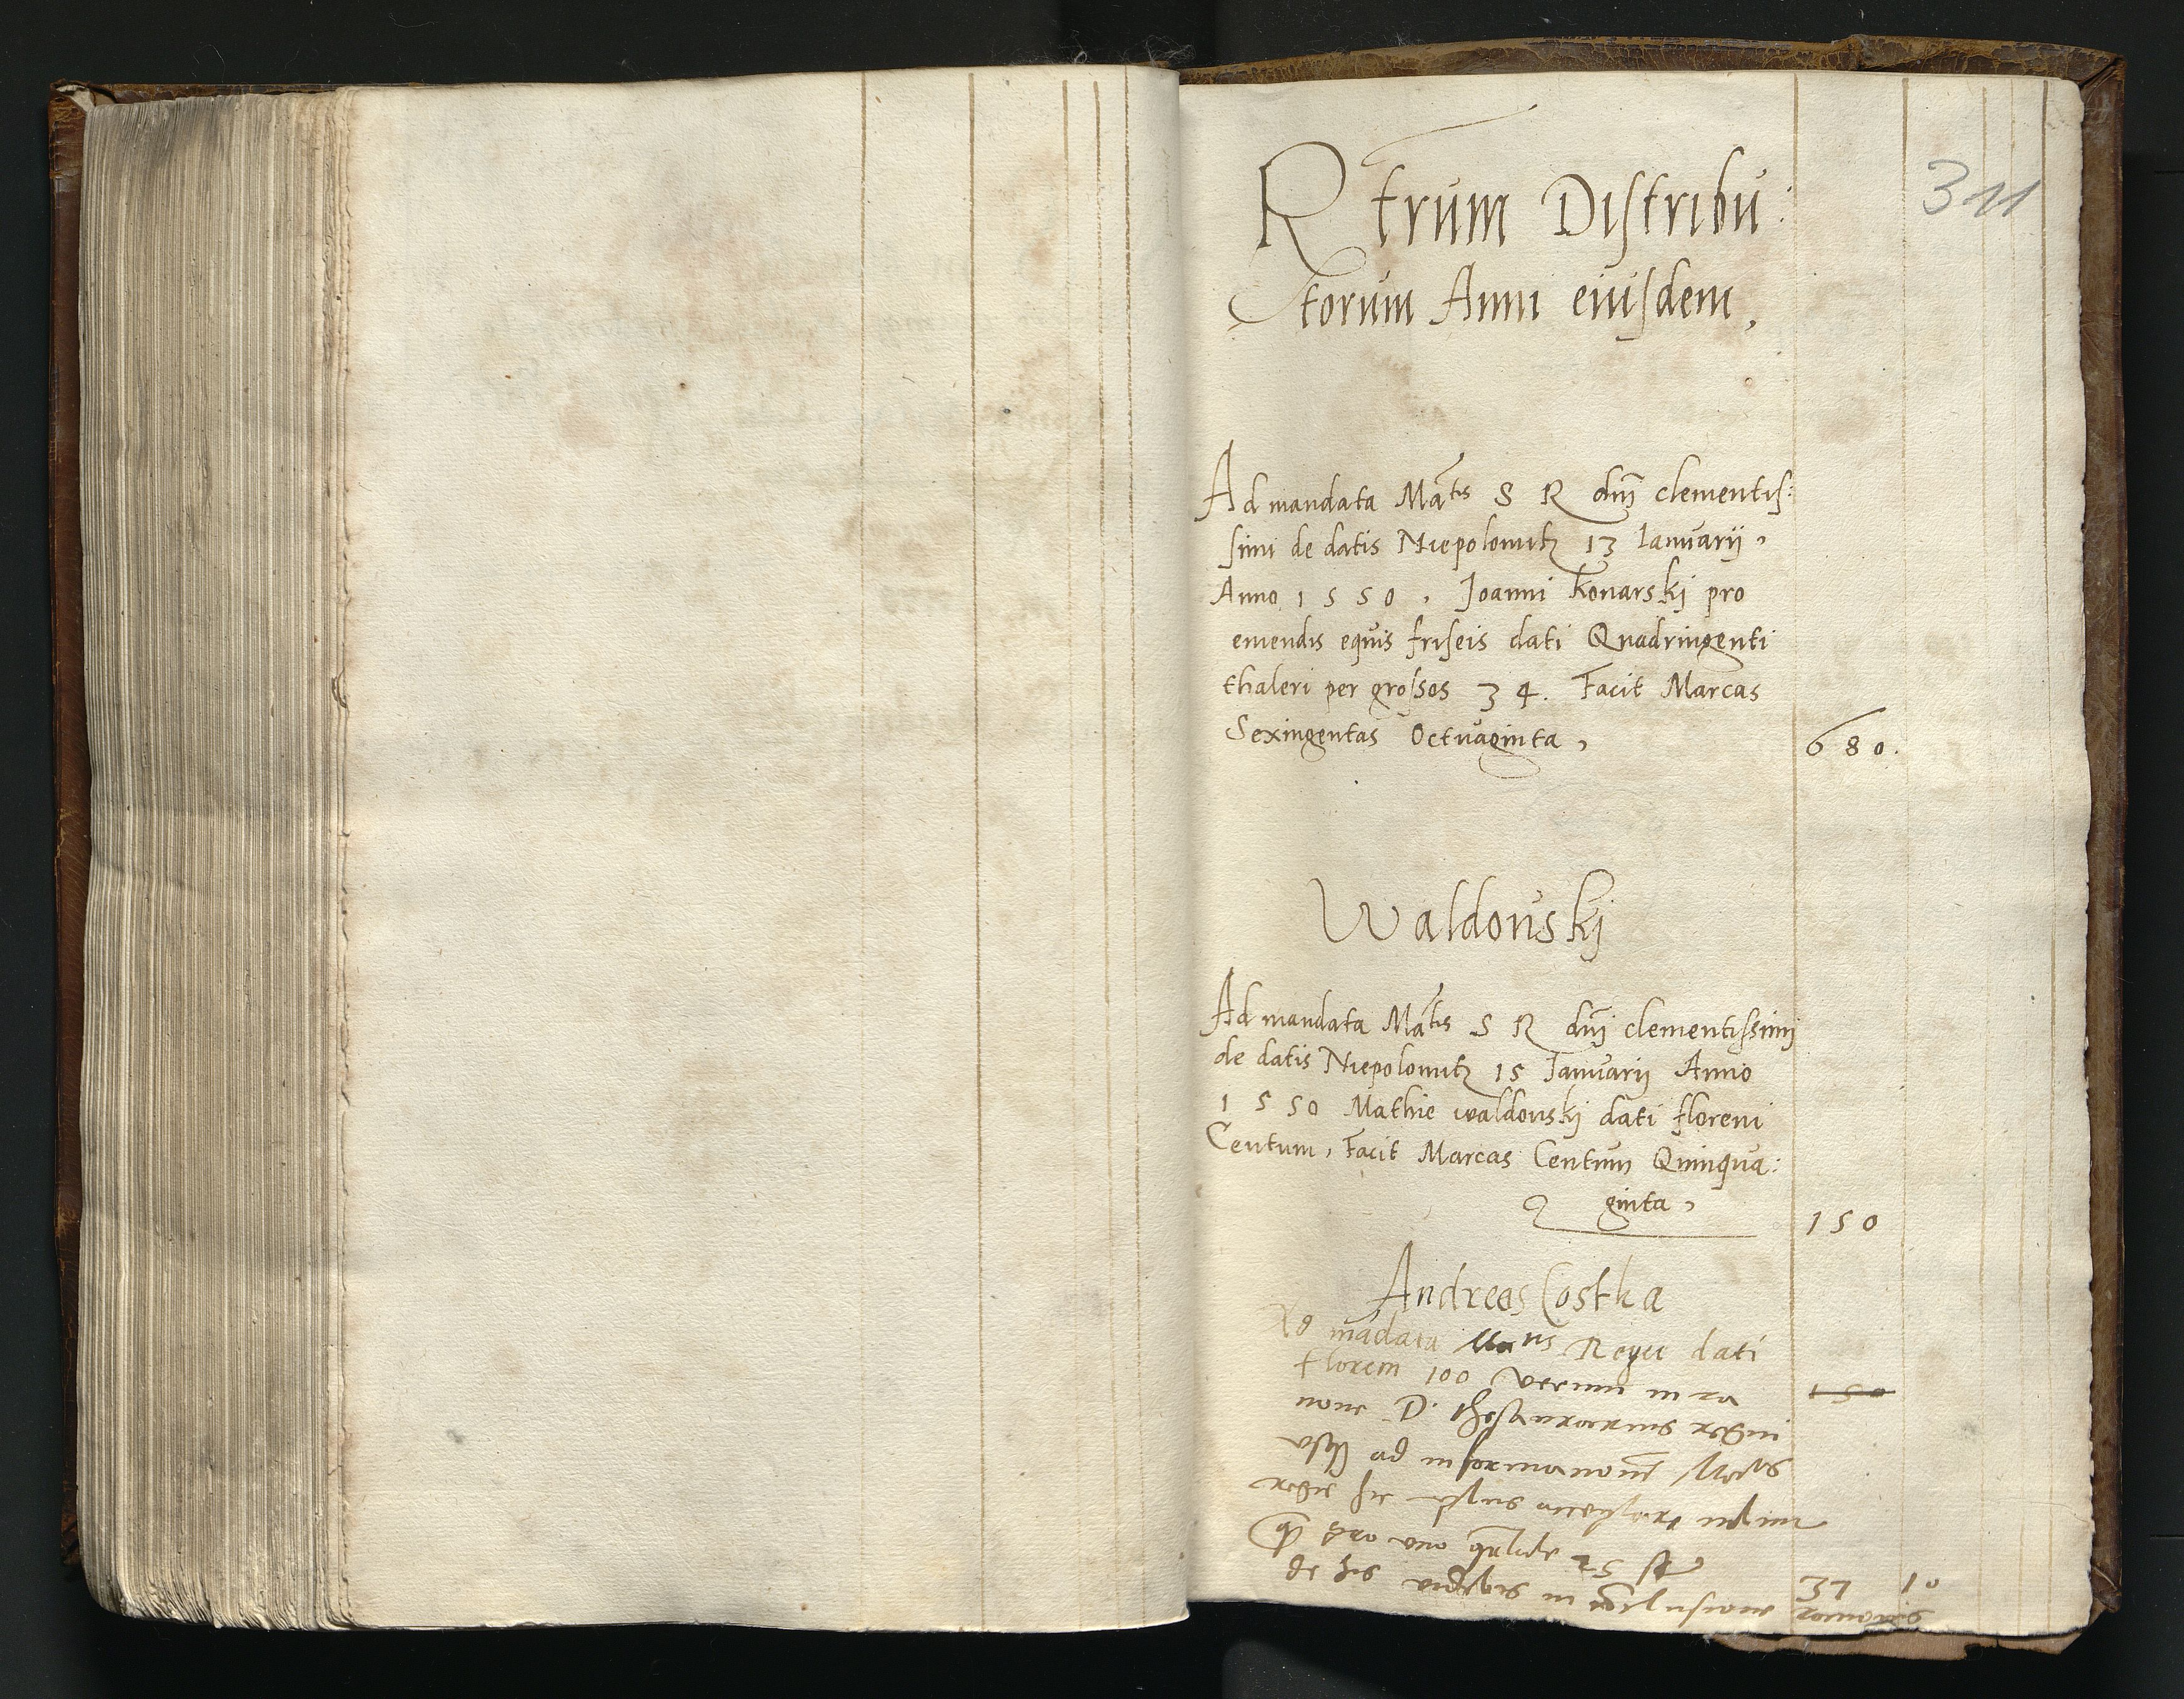 311
Rtrum Distribu:
torum Anni eiusdem,
Ad mandata Matis S R dni clementis:
simi de datis Niepolomitz 13 Ianuarij,
Anno 1550, Joanni Konarskj pro
emendis equis friseis dati Quadringenti
thaleri per grossos 34. Facit Marcas
Sexingentas Octuaginta, 680.
Waldowskj
Ad mandata Matis S R dni clementissimi
de datis Niepolomitz 15 Ianuarij Anno
1550 Mathie waldowskj dati floreni
Centum, Facit Marcas Centum Quinqua:
ginta, 150
Andreas Costka
Ad madata Regie dati
floren 100 verum in ra 150
D. Thesaurarius
ad
37 10
de his in